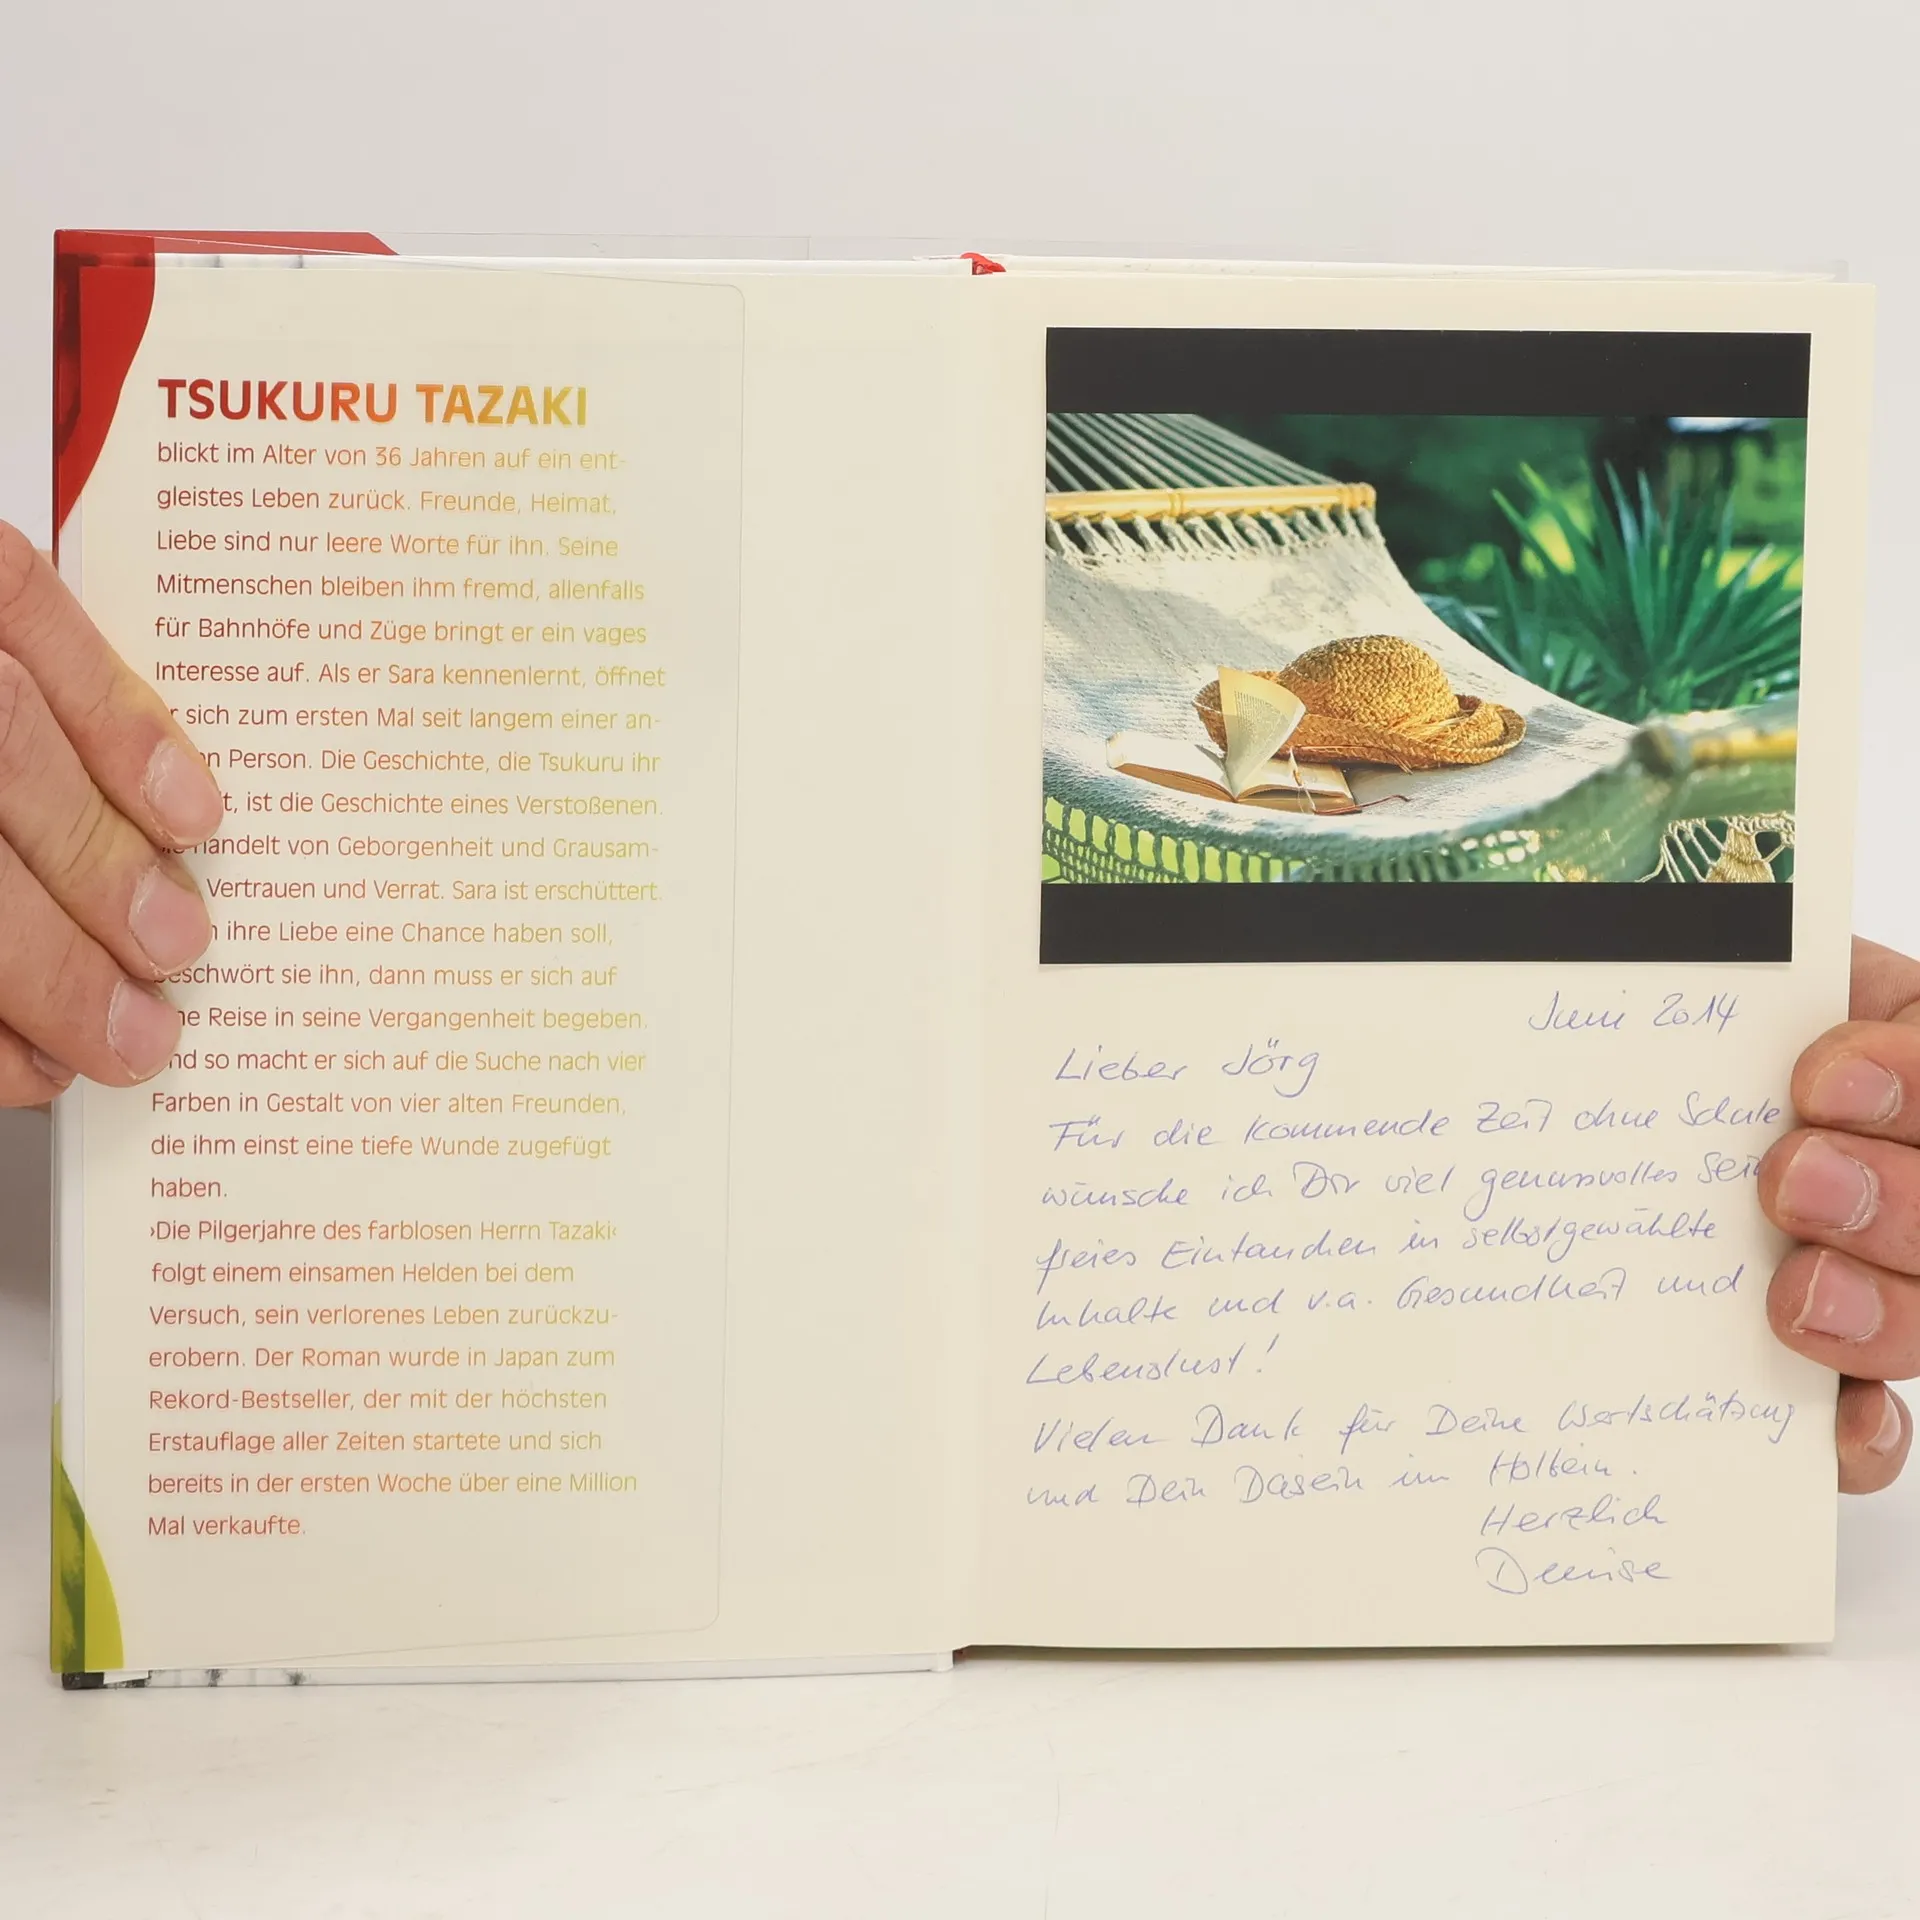 TSUKURU TAZAKI
blickt im Alter von 36 Jahren auf ein ent-
gleistes Leben zurück. Freunde, Heimat,
Liebe sind nur leere Worte für ihn. Seine
Mitmenschen bleiben ihm fremd, allenfalls
für Bahnhöfe und Züge bringt er ein vages
Interesse auf. Als er Sara kennenlernt, öffnet
r sich zum ersten Mal seit langem einer an-
n Person. Die Geschichte, die Tsukuru ihr
t, ist die Geschichte eines Verstoßenen.
handelt von Geborgenheit und Grausam-
Vertrauen und Verrat. Sara ist erschüttert.
n ihre Liebe eine Chance haben soll,
beschwört sie ihn, dann muss er sich auf
ne Reise in seine Vergangenheit begeben.
nd so macht er sich auf die Suche nach vier
Farben in Gestalt von vier alten Freunden,
die ihm einst eine tiefe Wunde zugefügt
haben.
›Die Pilgerjahre des farblosen Herrn Tazaki‹
folgt einem einsamen Helden bei dem
Versuch, sein verlorenes Leben zurückzu-
erobern. Der Roman wurde in Japan zum
Rekord-Bestseller, der mit der höchsten
Erstauflage aller Zeiten startete und sich
bereits in der ersten Woche über eine Million
Mal verkaufte.
Juni 2014
Lieber Jörg
Für die kommende Zeit ohne Schule
wünsche ich Dir viel genussvolles Sein
freies Eintauchen in selbstgewählte
Inhalte und v.a. Gesundheit und
Lebenslust!
Vielen Dank für Deine Wertschätzung
und Dein Dasein im Holbein.
Herzlich
Denise